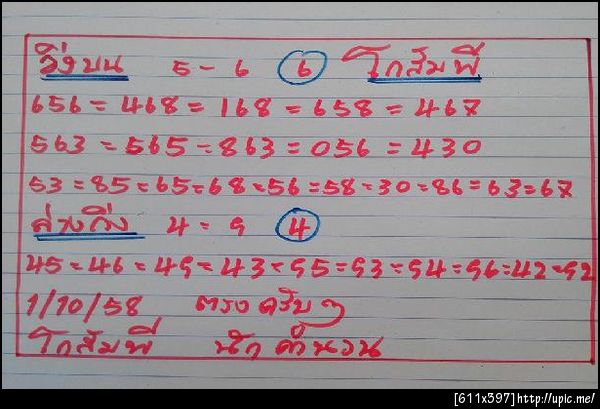 วิ่งบน 5 - 6 6 โกสัมพี
656 = 468 = 168 = 658 = 467
563 = 565 = 863 = 056 = 430
53 = 85 = 65 = 68 = 56 = 58 = 30 = 86 = 63 = 67
ล่างวิ่ง 4 = 9 4
45 = 46 = 49 = 43 = 95 = 93 = 94 = 96 = 42 = 92
1/10/58 ตรง ครับๆ
โกสัมพี นัก คำนวน
[611x597]http://upic.me/